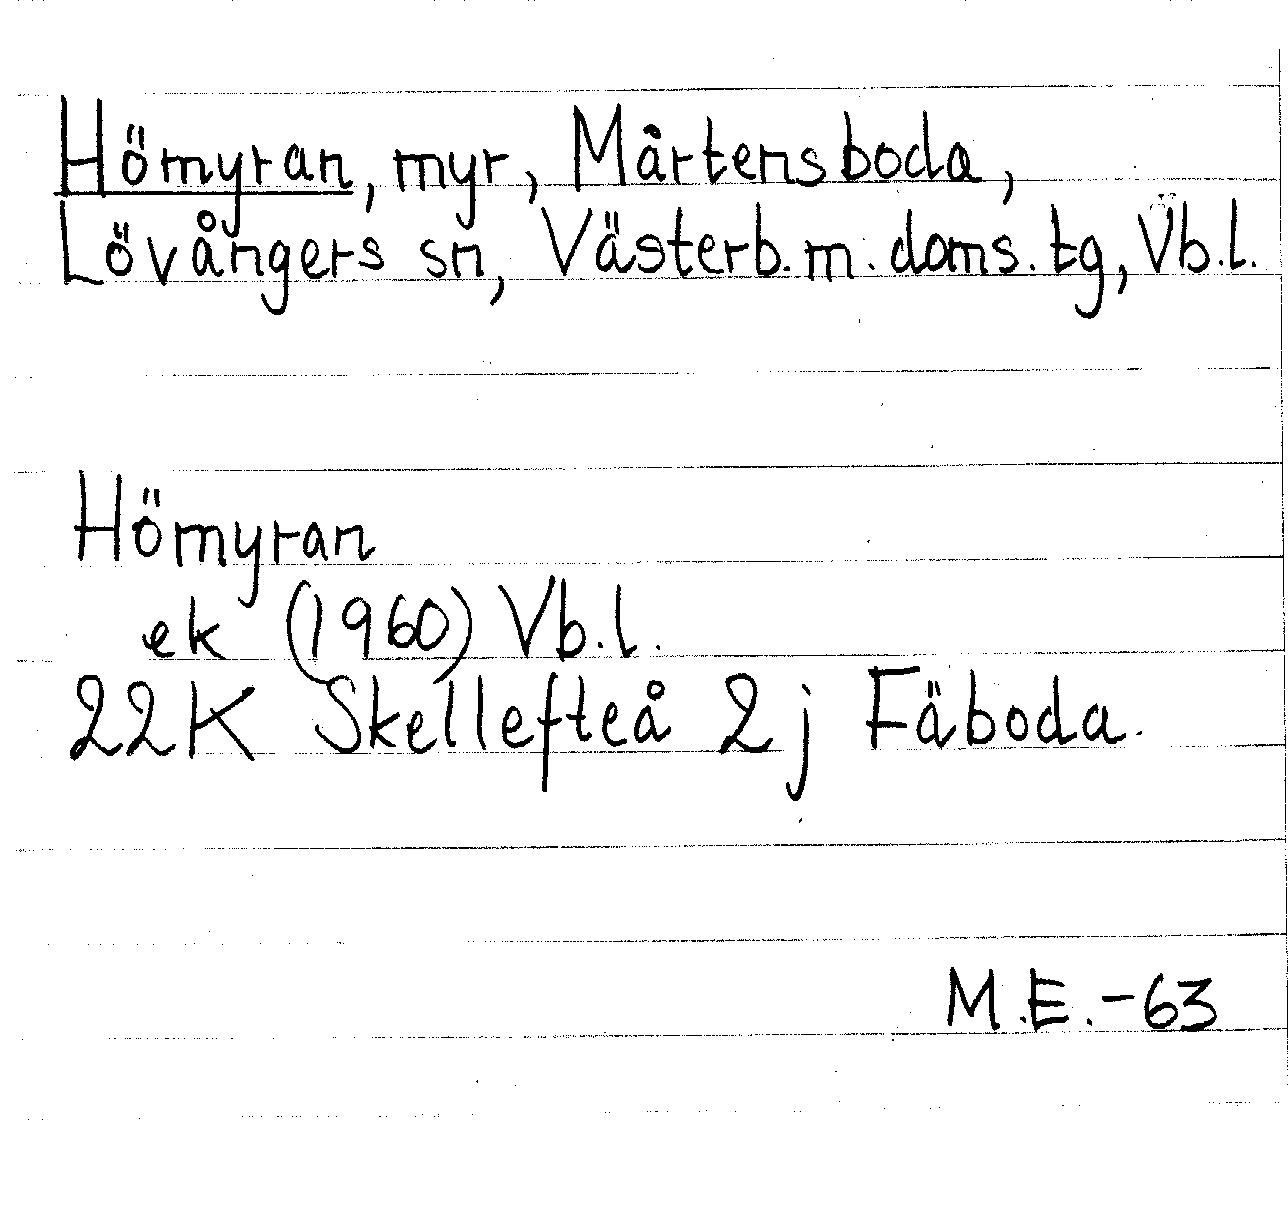 Hömyran, myr, Mårtensboda,
Lövångers sn, Västerb.m.doms.tg, Vb.l.
Hömyran
ek (1960) Vb.l.
22K Skellefteå 2j Fäboda.
M.E.-63